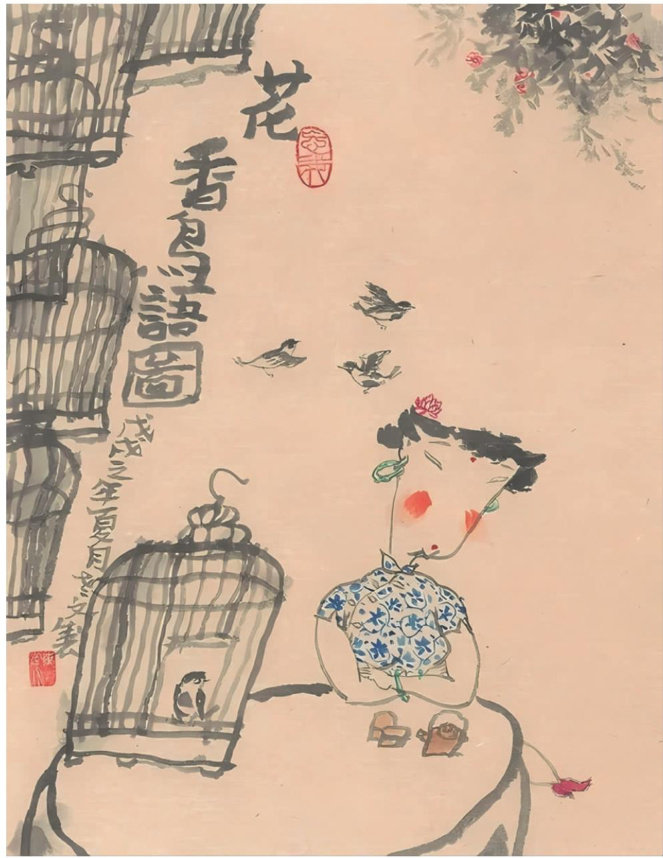 花香鳥語圖
戊戌之年夏月